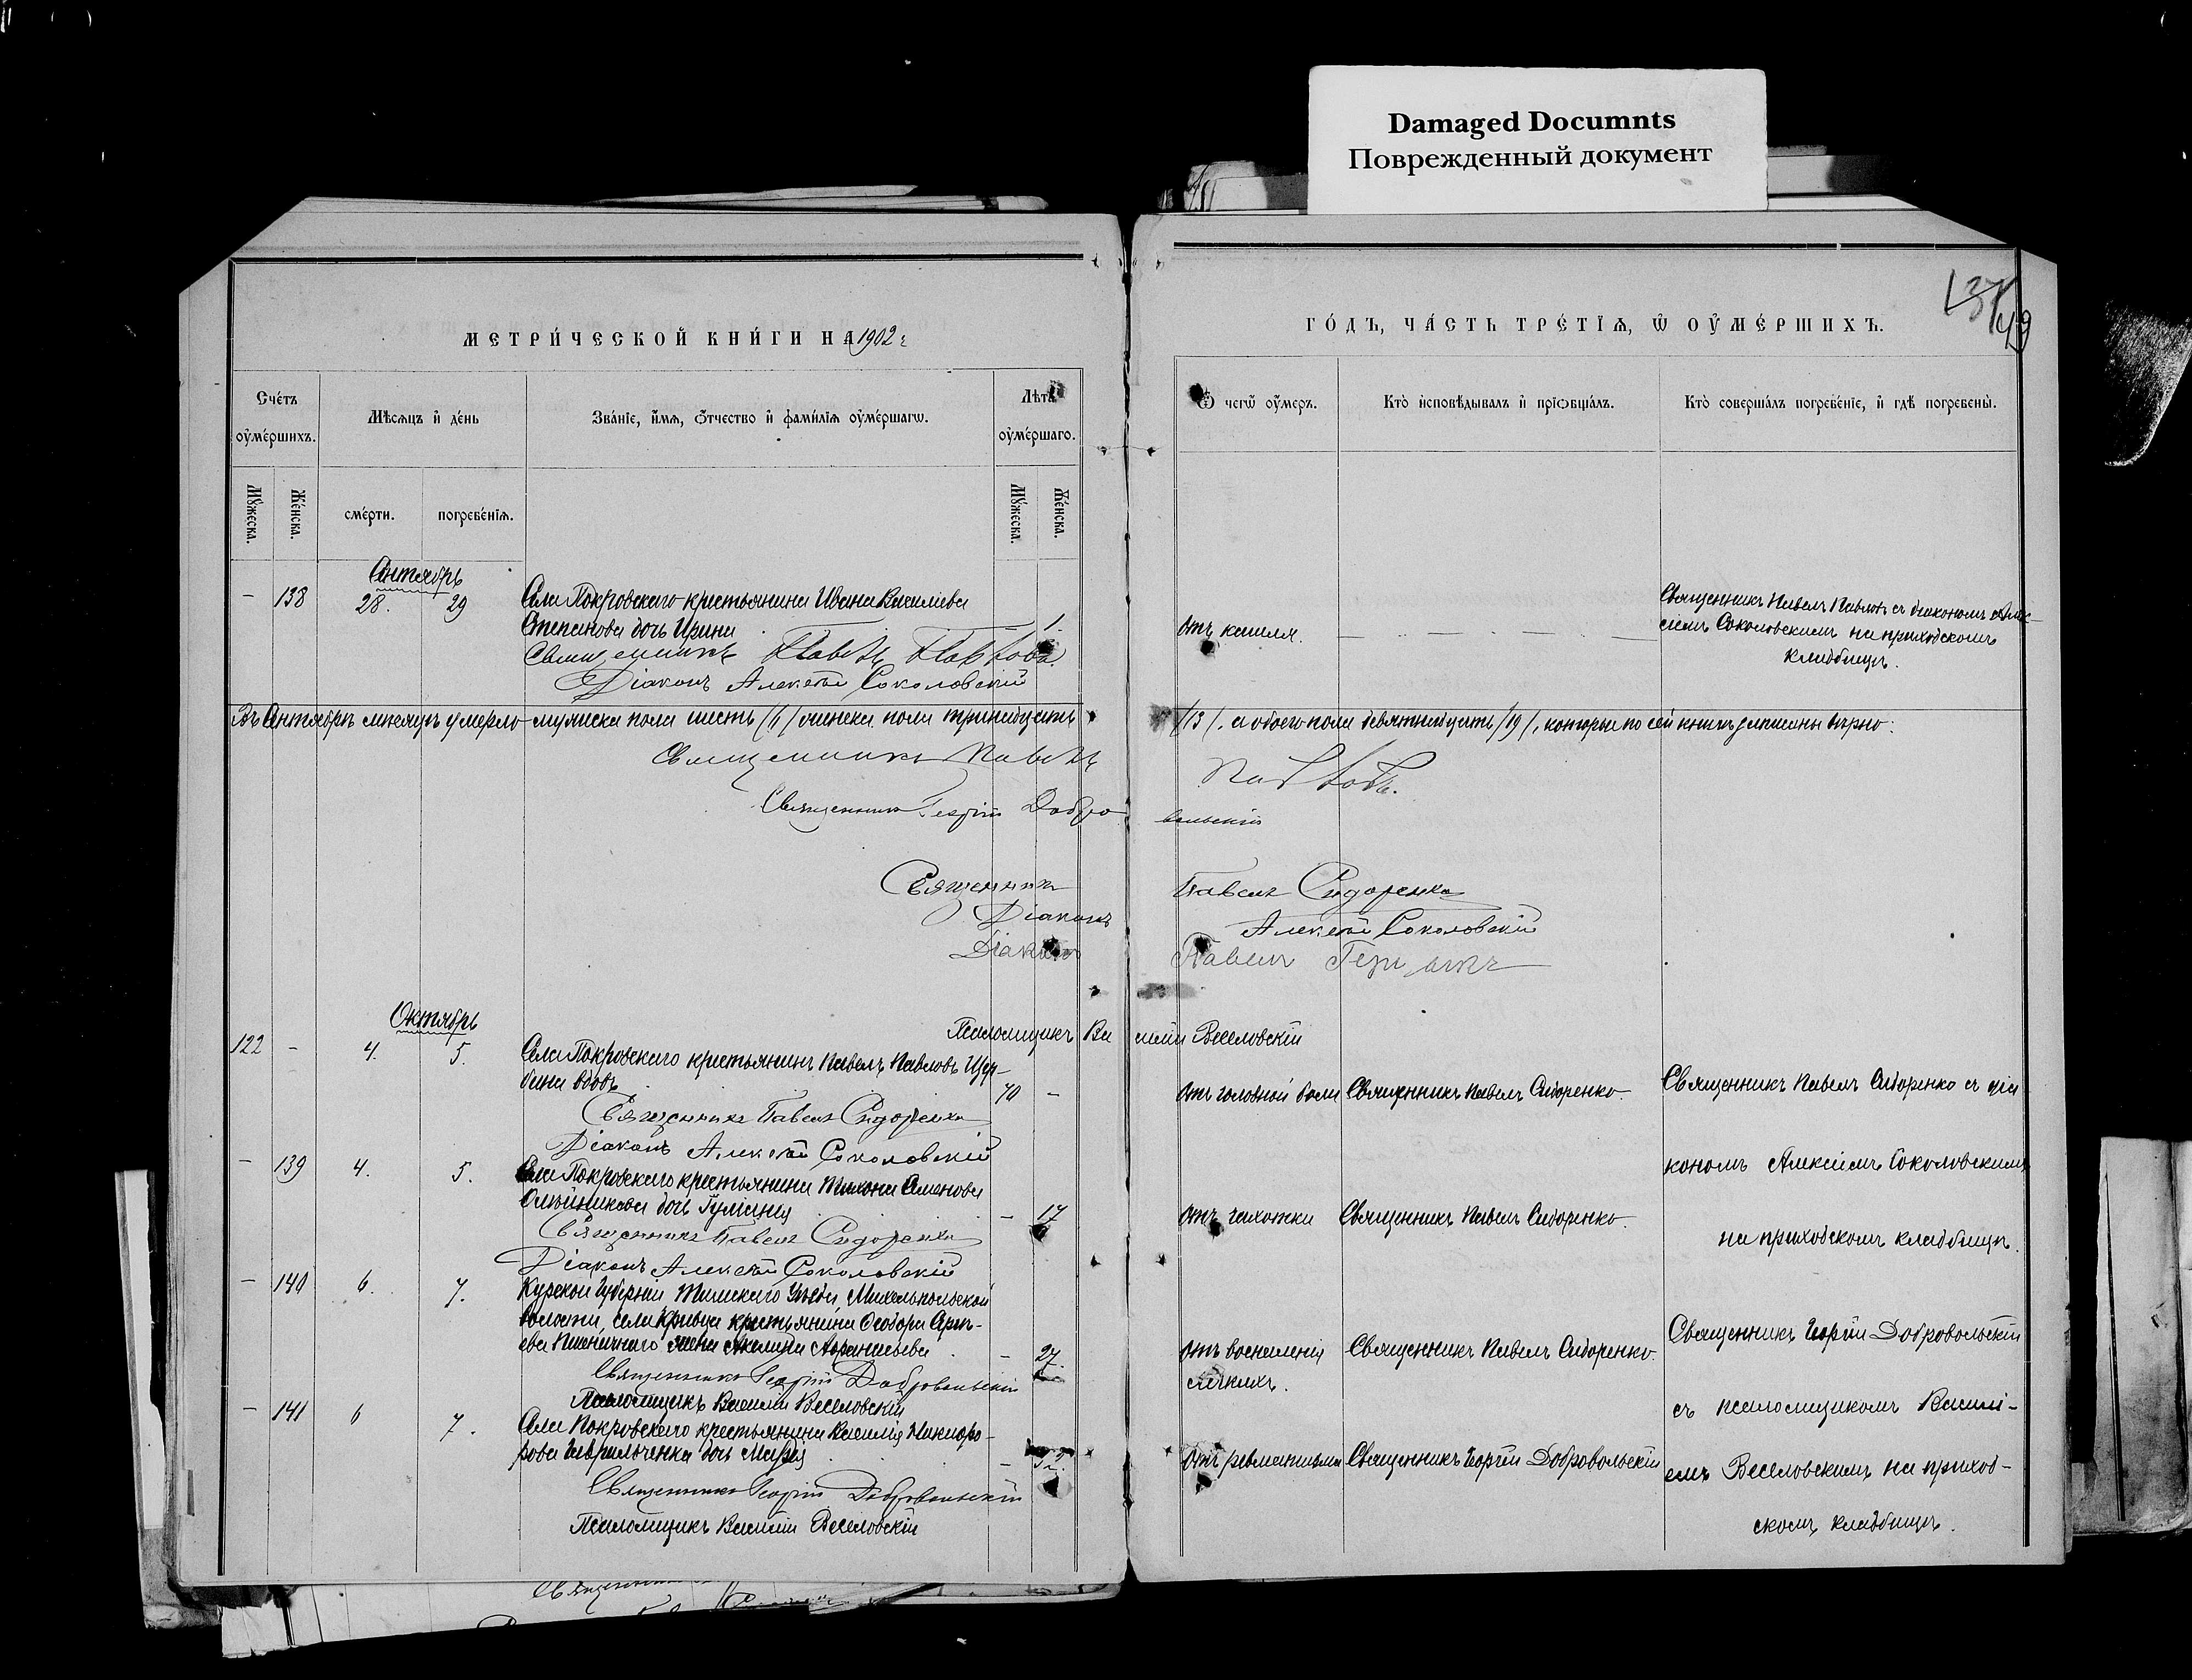 Damaged Documnts
Поврежденный документ
МЕТРИ́ЧЕСКОЙ КНИ́ГИ НА 1902 г
ГО́ДЪ, ЧА́СТЬ ТРЕ́ТІѦ, Ѡ ОУ҆МЕ́РШИХЪ.
137
149
Сче́тъ оу҆ме́ршихъ.
Мѣ́сѧцъ и҆ де́нь
Зва́нїе, и҆́мѧ, ѻ҆́тчество и҆ фами́лїѧ оу҆ме́ршагѡ.
Лѣ́та оу҆ме́ршаго.
Ѿ чегѡ̀ оу҆́меръ.
Кто̀ и҆сповѣ́дывалъ и҆ прїѡбща́лъ.
Кто̀ соверша́лъ погребе́нїе, и҆ гдѣ̀ погребены̀.
Му́жеска.
Же́нска.
сме́рти.
погребе́нїѧ.
Му́жеска.
Же́нска.
Сентябрь
– 138 28. 29 Села Покровскаго крестьянина Ивана Васильева
Степанова дочь Ирина – 1.
Священникъ Павелъ Павловъ.
Діаконъ Алексѣй Соколовскій
отъ кашля.
Священникъ Павелъ Павловъ съ діакономъ Алек-
сіемъ Соколовскимъ на приходскомъ
кладбищѣ.
Въ Сентябрѣ мѣсяцѣ умерло мужеска пола шесть /6/ женска пола тринадцать
/13/, а обоего пола девятнадцать /19/, которые по сей книгѣ записаны вѣрно:
Священникъ Павелъ Павловъ.
Священникъ Георгій Добровольскій
Священникъ Павелъ Сидоренко
Діаконъ Алексѣй Соколовскій
Діаконъ Павелъ
Псаломщикъ Василій Веселовскій
Октябрь
122 – 4. 5. Села Покровскаго крестьянинъ Павелъ Павловъ Щер-
бина вдовъ 70 –
Священникъ Павелъ Сидоренко
Діаконъ Алексѣй Соколовскій
отъ головной боли Священникъ Павелъ Сидоренко.
Священникъ Павелъ Сидоренко съ діа
кономъ Алексіемъ Соколовскимъ
на приходскомъ кладбищѣ.
– 139 4. 5. Села Покровскаго крестьянина Тихона Семенова
Олейникова дочь Гуліанія – 17
Священникъ Павелъ Сидоренко
Діаконъ Алексѣй Соколовскій
отъ чахотки Священникъ Павелъ Сидоренко.
– 140 6. 7. Курской губерніи Тимскаго уѣзда, Михельпольской
волости, села Кривца крестьянина Ѳеодора Арте-
ева Пшеничнаго жена Акилина Аѳанасьева – 27.
Священникъ Георгій Добровольскій
Псаломщикъ Василій Веселовскій
отъ воспаленія
легкихъ.
Священникъ Павелъ Сидоренко.
Священникъ Георгій Добровольскій
съ псаломщикомъ Василі-
емъ Веселовскимъ на приход-
скомъ кладбищѣ.
– 141 6 7. Села Покровскаго крестьянина Василія Никифо-
рова Гаврильченка дочь Марія
Священникъ Георгій Добровольскій
Псаломщикъ Василій Веселовскій
отъ ревматизма Священникъ Георгій Добровольскій